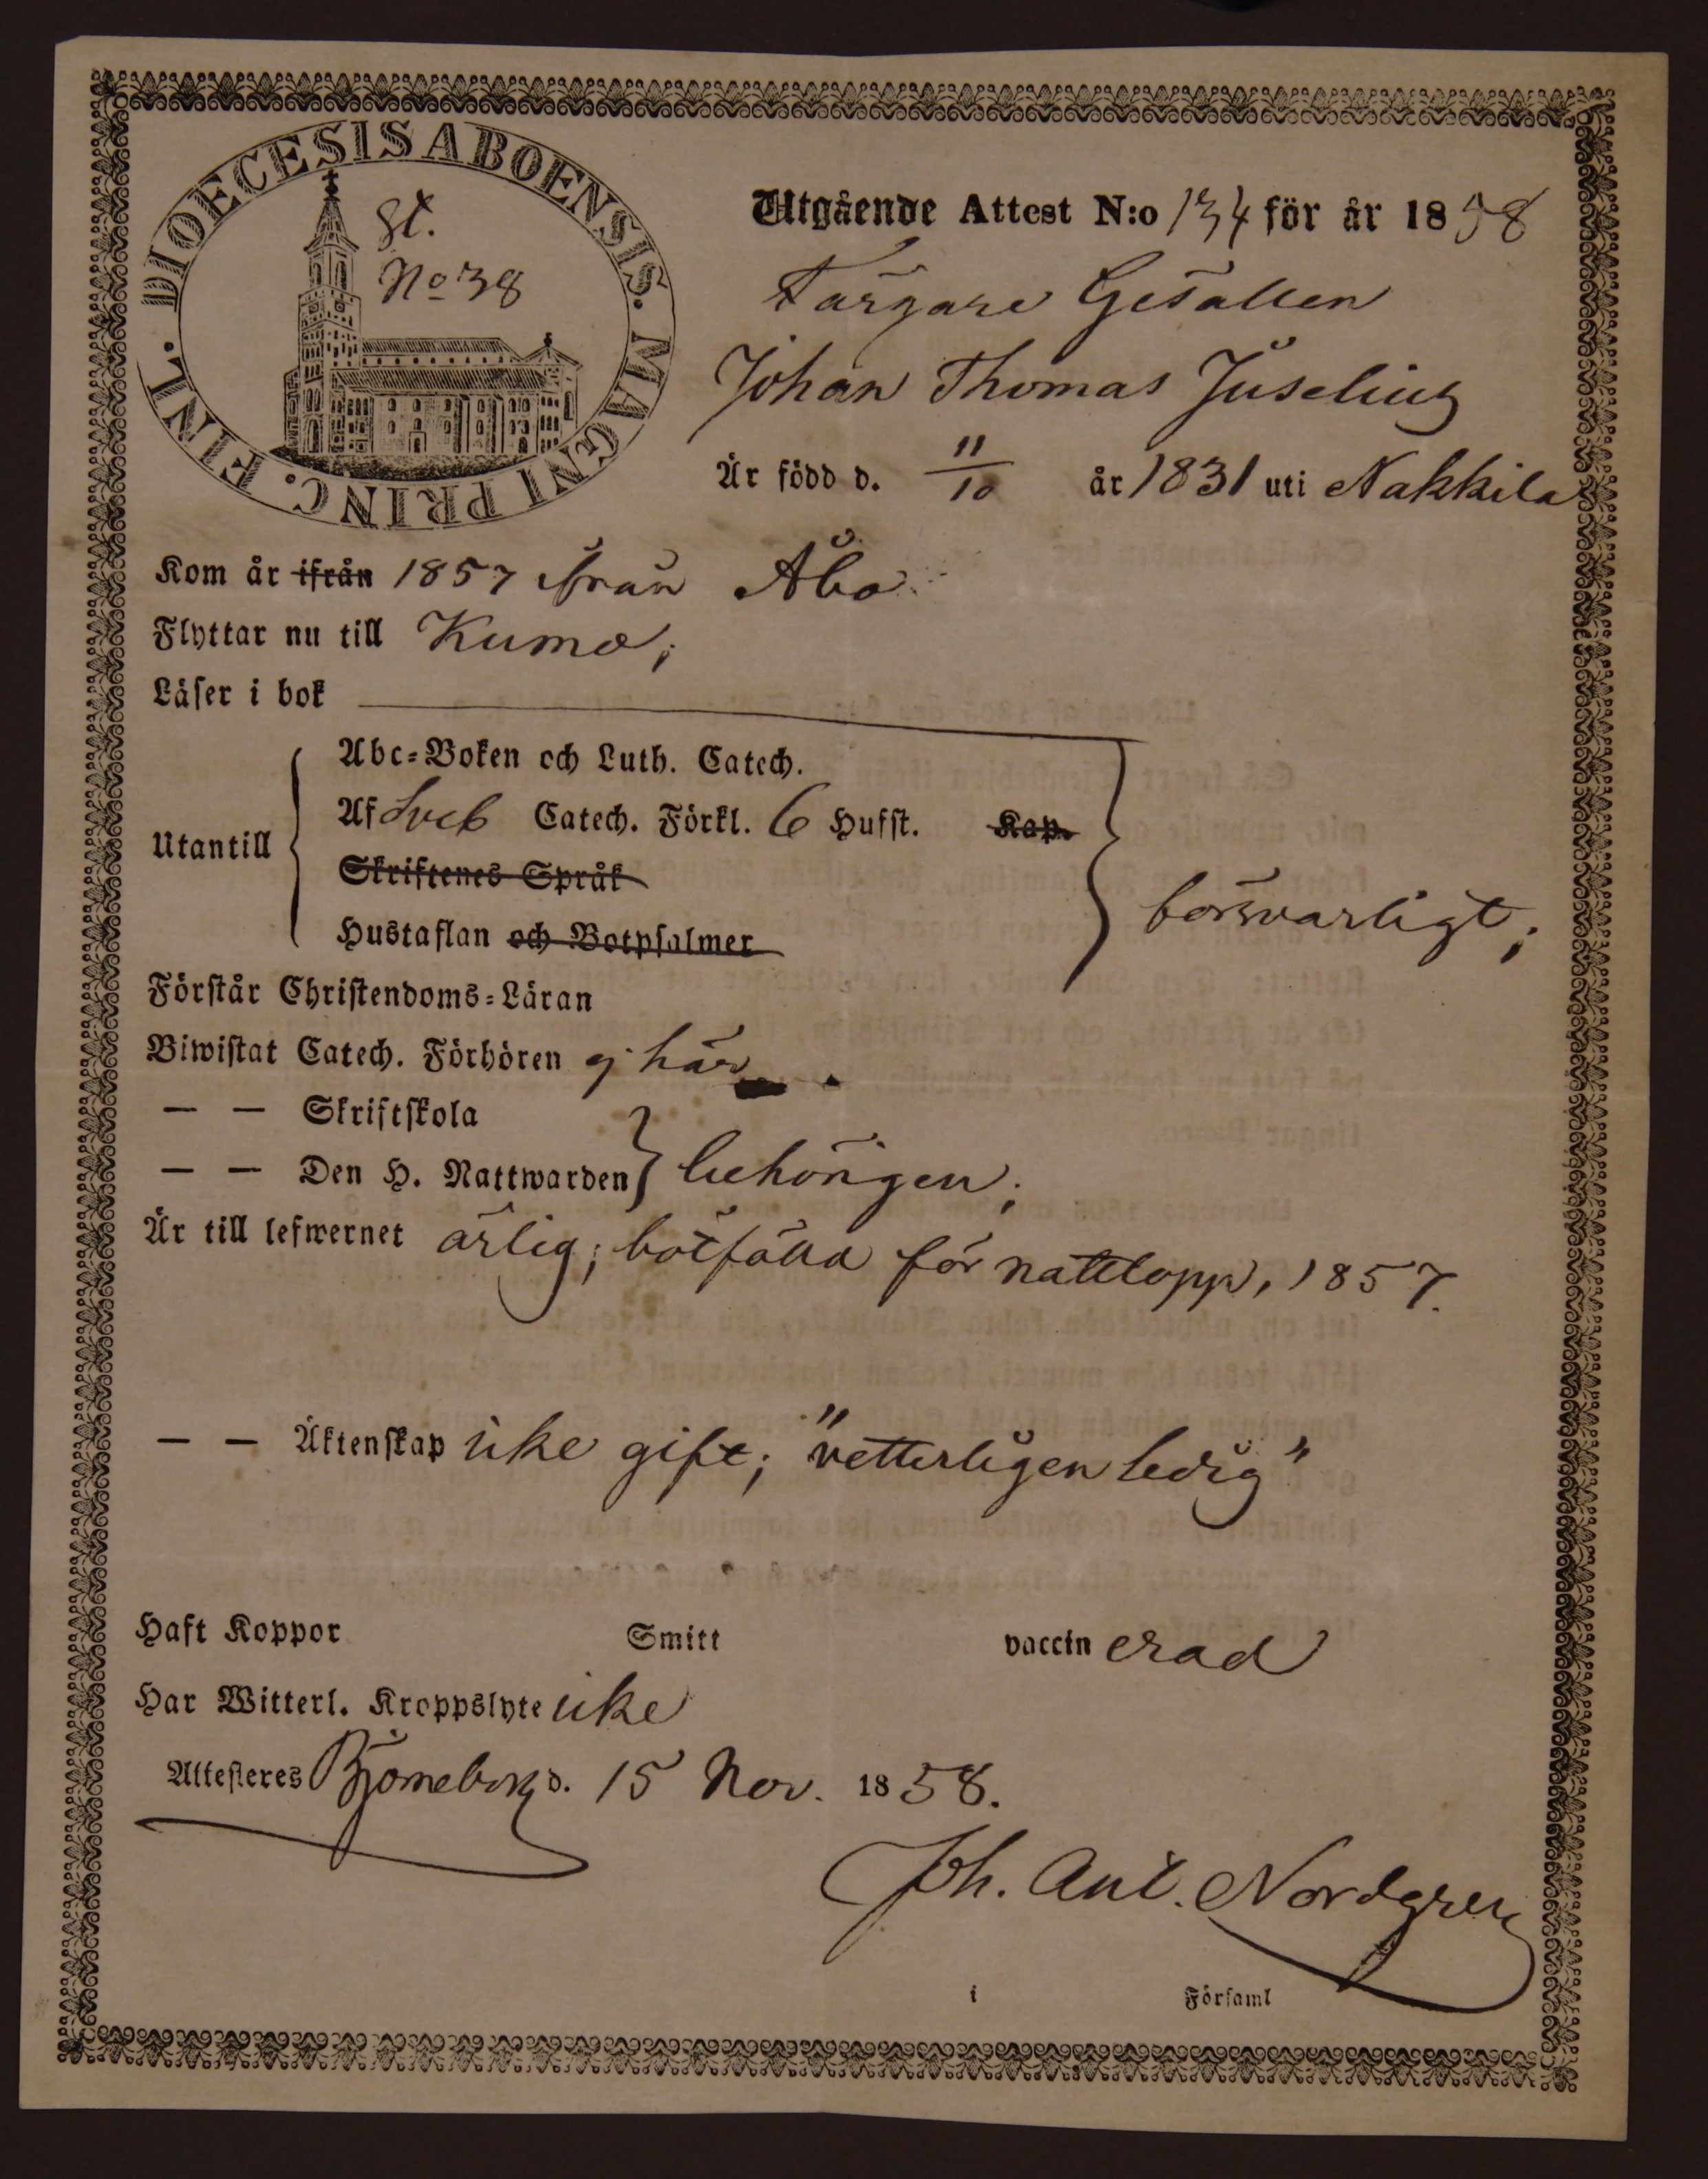 DIOECESIS ABOENSIS. MAGNI PRINC. FINL.
St.
No 38
Utgående Attest N:o 134 för år 1858
Färgare Gesällen
Johan Thomas Juselius
Är född d. 11/10 år 1831 uti Nakkila
Kom år ifrån 1857 ifrån Åbo
Flyttar nu till Kumo;
Läser i bok
Abc-Boken och Luth. Catech.
Af Sveb Catech. Förkl. 6 Hufst. Kap.
Utantill
Skriftenes Språk
Hustaflan och Botpsalmer
försvarligt;
Förstår Christendoms-Läran
Biwistat Catech. Förhören ej här
— — Skriftskola
— — Den H. Nattwarden behörigen;
Är till lefwernet ärlig; bötfälld för nattlopp, 1857.
— — Äktenskap icke gift; "vetterligen ledig"
Haft Koppor Smitt vaccinerad
Har Witterl. Kroppslyte icke
Attesteres Björneborg d. 15 Nov. 1858.
Joh. Ant. Nordgren
i Församl